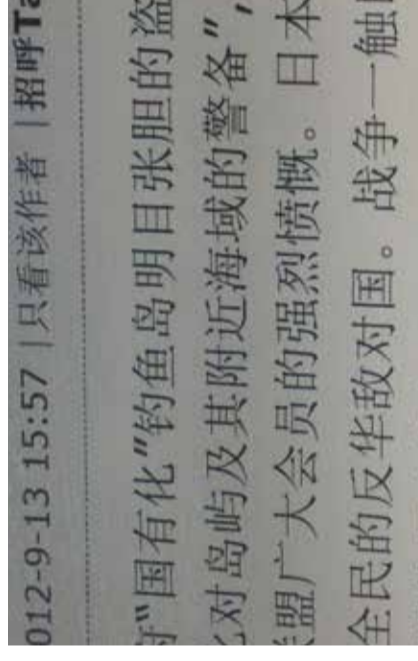 012-9-13 15:57 |只看该作者 |招呼Ta
"国有化"钓鱼岛明目张胆的盗
对岛屿及其附近海域的警备",
盟广大会员的强烈愤慨。日本
全民的反华敌对国。战争一触